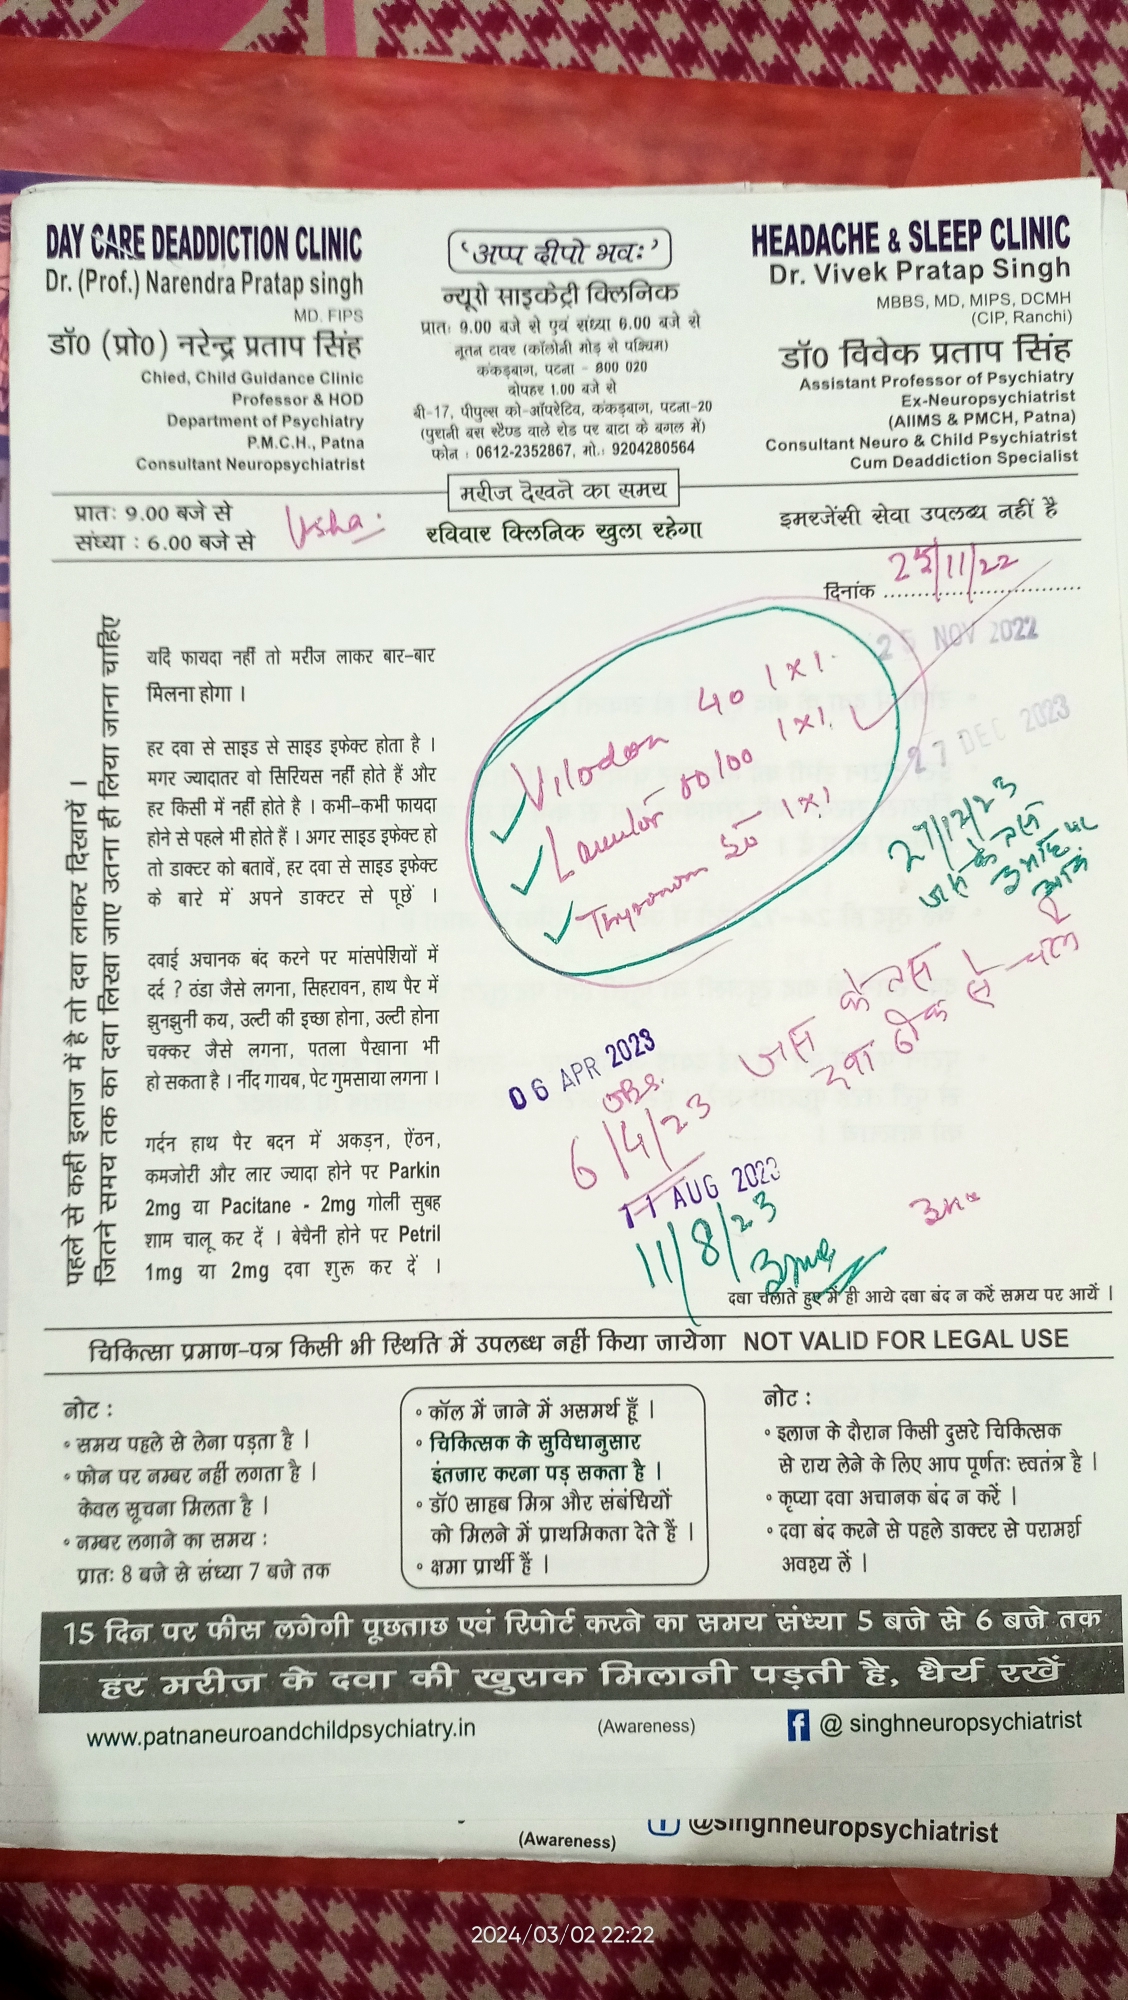 DAY CARE DEADDICTION CLINIC
Dr. (Prof.) Narendra Pratap singh
MD. FIPS
डॉ0 (प्रो0) नरेन्द्र प्रताप सिंह
Chied, Child Guidance Clinic
Professor & HOD
Department of Psychiatry
P.M.C.H., Patna
Consultant Neuropsychiatrist
'अप्प दीपो भवः'
न्यूरो साइकेट्री क्लिनिक
प्रातः 9.00 बजे से एवं संध्या 6.00 बजे से
नूतन टावर (कॉलोनी मोड़ से पश्चिम)
कंकड़बाग, पटना - 800 020
दोपहर 1.00 बजे से
बी-17, पीपुल्स को-ऑपरेटिव, कंकड़बाग, पटना-20
(पुरानी बस स्टैण्ड वाले रोड पर बाटा के बगल में)
फोन : 0612-2352867, मो.: 9204280564
HEADACHE & SLEEP CLINIC
Dr. Vivek Pratap Singh
MBBS, MD, MIPS, DCMH
(CIP, Ranchi)
डॉ0 विवेक प्रताप सिंह
Assistant Professor of Psychiatry
Ex-Neuropsychiatrist
(AIIMS & PMCH, Patna)
Consultant Neuro & Child Psychiatrist
Cum Deaddiction Specialist
मरीज देखने का समय
प्रातः 9.00 बजे से
संध्या : 6.00 बजे से
Usha
रविवार क्लिनिक खुला रहेगा
इमरजेंसी सेवा उपलब्ध नहीं है
दिनांक 25/11/22
NOV 2022
27 DEC 2023
पहले से कहीं इलाज में है तो दवा लाकर दिखायें ।
जितने समय तक का दवा लिखा जाए उतना ही लिया जाना चाहिए
यदि फायदा नहीं तो मरीज लाकर बार-बार
मिलना होगा ।
हर दवा से साइड से साइड इफेक्ट होता है ।
मगर ज्यादातर वो सिरियस नहीं होते हैं और
हर किसी में नहीं होते है । कभी-कभी फायदा
होने से पहले भी होते हैं । अगर साइड इफेक्ट हो
तो डाक्टर को बतावें, हर दवा से साइड इफेक्ट
के बारे में अपने डाक्टर से पूछें ।
दवाई अचानक बंद करने पर मांसपेशियों में
दर्द ? ठंडा जैसे लगना, सिहरावन, हाथ पैर में
झुनझुनी कय, उल्टी की इच्छा होना, उल्टी होना
चक्कर जैसे लगना, पतला पैखाना भी
हो सकता है । नींद गायब, पेट गुमसाया लगना ।
गर्दन हाथ पैर बदन में अकड़न, ऐंठन,
कमजोरी और लार ज्यादा होने पर Parkin
2mg या Pacitane - 2mg गोली सुबह
शाम चालू कर दें । बेचैनी होने पर Petril
1mg या 2mg दवा शुरू कर दें ।
Vilodon 40 1x1
1x1
Thyronorm 50 1x1
27/12/23
जस के तस
जस के तस
दवा ठीक से चले
06 APR 2023
6/4/23
11 AUG 2023
11/8/23
दवा चलाते हुए में ही आये दवा बंद न करें समय पर आयें ।
चिकित्सा प्रमाण-पत्र किसी भी स्थिति में उपलब्ध नहीं किया जायेगा NOT VALID FOR LEGAL USE
नोट :
• समय पहले से लेना पड़ता है ।
• फोन पर नम्बर नहीं लगता है ।
केवल सूचना मिलता है ।
• नम्बर लगाने का समय :
प्रातः 8 बजे से संध्या 7 बजे तक
• कॉल में जाने में असमर्थ हूँ ।
• चिकित्सक के सुविधानुसार
इंतजार करना पड़ सकता है ।
• डॉ0 साहब मित्र और संबंधियों
को मिलने में प्राथमिकता देते हैं ।
• क्षमा प्रार्थी हैं ।
नोट :
• इलाज के दौरान किसी दुसरे चिकित्सक
से राय लेने के लिए आप पूर्णतः स्वतंत्र है ।
• कृप्या दवा अचानक बंद न करें ।
• दवा बंद करने से पहले डाक्टर से परामर्श
अवश्य लें ।
15 दिन पर फीस लगेगी पूछताछ एवं रिपोर्ट करने का समय संध्या 5 बजे से 6 बजे तक
हर मरीज के दवा की खुराक मिलानी पड़ती है, धैर्य रखें
www.patnaneuroandchildpsychiatry.in
(Awareness)
@ singhneuropsychiatrist
(Awareness)
@singhneuropsychiatrist
2024/03/02 22:22